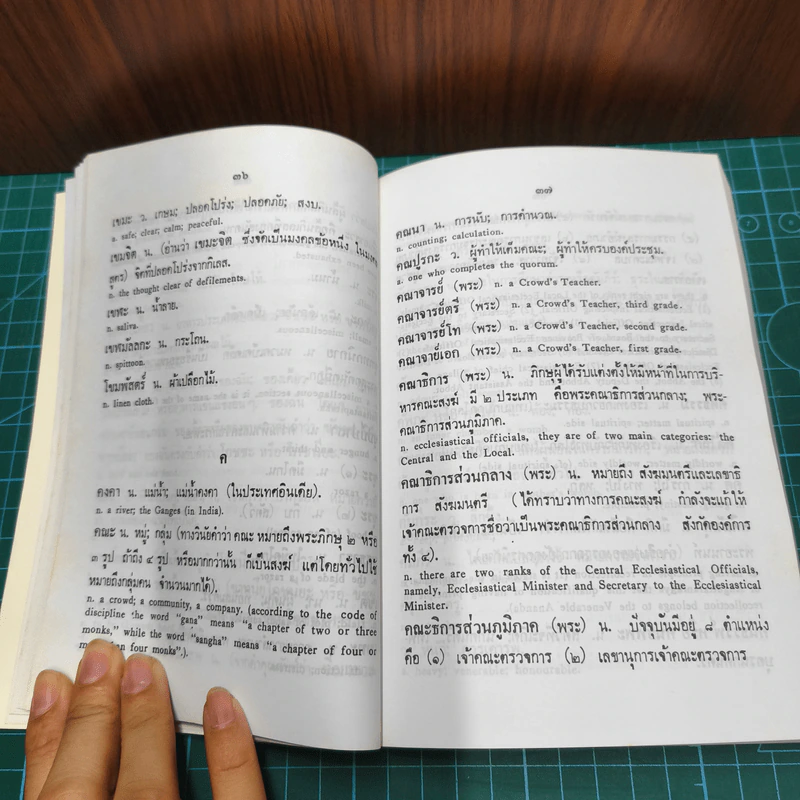 ๓๖
เขมะ ว. เกษม; ปลอดโปร่ง; ปลอดภัย; สงบ.
a. safe; clear; calm; peaceful.
เขมจิต น. (อ่านว่า เขมะจิต ซึ่งจัดเป็นมงคลข้อหนึ่ง ในมงคล
สูตร) จิตที่ปลอดโปร่งจากกิเลส.
n. the thought clear of defilements.
เขฬะ น. น้ำลาย.
n. saliva.
เขฬมัลลกะ น. กระโถน.
n. spittoon.
โขมพัสตร์ น. ผ้าเปลือกไม้.
n. linen cloth.
ค
คงคา น. แม่น้ำ; แม่น้ำคงคา (ในประเทศอินเดีย).
n. a river; the Ganges (in India).
คณะ น. หมู่; กลุ่ม (ทางวินัยคำว่า คณะ หมายถึงพระภิกษุ ๒ หรือ
๓ รูป ถ้าถึง ๔ รูป หรือมากกว่านั้น ก็เป็นสงฆ์ แต่โดยทั่วไปใช้
หมายถึงกลุ่มคน จำนวนมากได้).
n. a crowd; a community, a company, (according to the code of
discipline the word "gana" means "a chapter of two or three
monks," while the word "sangha" means "a chapter of four or
four monks".).
๓๗
คณนา น. การนับ; การคำนวณ.
n. counting; calculation.
คณปูรกะ ว. ผู้ทำให้เต็มคณะ; ผู้ทำให้ครบองค์ประชุม.
a. one who completes the quorum.
คณาจารย์ (พระ) n. a Crowd's Teacher.
คณาจารย์ตรี (พระ) n. a Crowd's Teacher, third grade.
คณาจารย์โท (พระ) n. a Crowd's Teacher, second grade.
คณาจาย์เอก (พระ) n. a Crowd's Teacher, first grade.
คณาธิการ (พระ) น. ภิกษุผู้ได้รับแต่งตั้งให้มีหน้าที่ในการบริ-
หารคณะสงฆ์ มี ๒ ประเภท คือพระคณาธิการส่วนกลาง; พระ-
คณาธิการส่วนภูมิภาค.
n. ecclesiastical officials, they are of two main categories: the
Central and the Local.
คณาธิการส่วนกลาง (พระ) น. หมายถึง สังฆมนตรีและเลขาธิ
การ สังฆมนตรี (ได้ทราบว่าทางการคณะสงฆ์ กำลังจะแก้ให้
เจ้าคณะตรวจการชื่อว่าเป็นพระคณาธิการส่วนกลาง สังกัดองค์การ
ทั้ง ๔).
n. there are two ranks of the Central Ecclesiastical Officials,
namely, Ecclesiastical Minister and Secretary to the Ecclesiastical
Minister.
คณะธิการส่วนภูมิภาค (พระ) น. ปัจจุบันมีอยู่ ๘ ตำแหน่ง
คือ (๑) เจ้าคณะตรวจการ (๒) เลขานุการเจ้าคณะตรวจการ